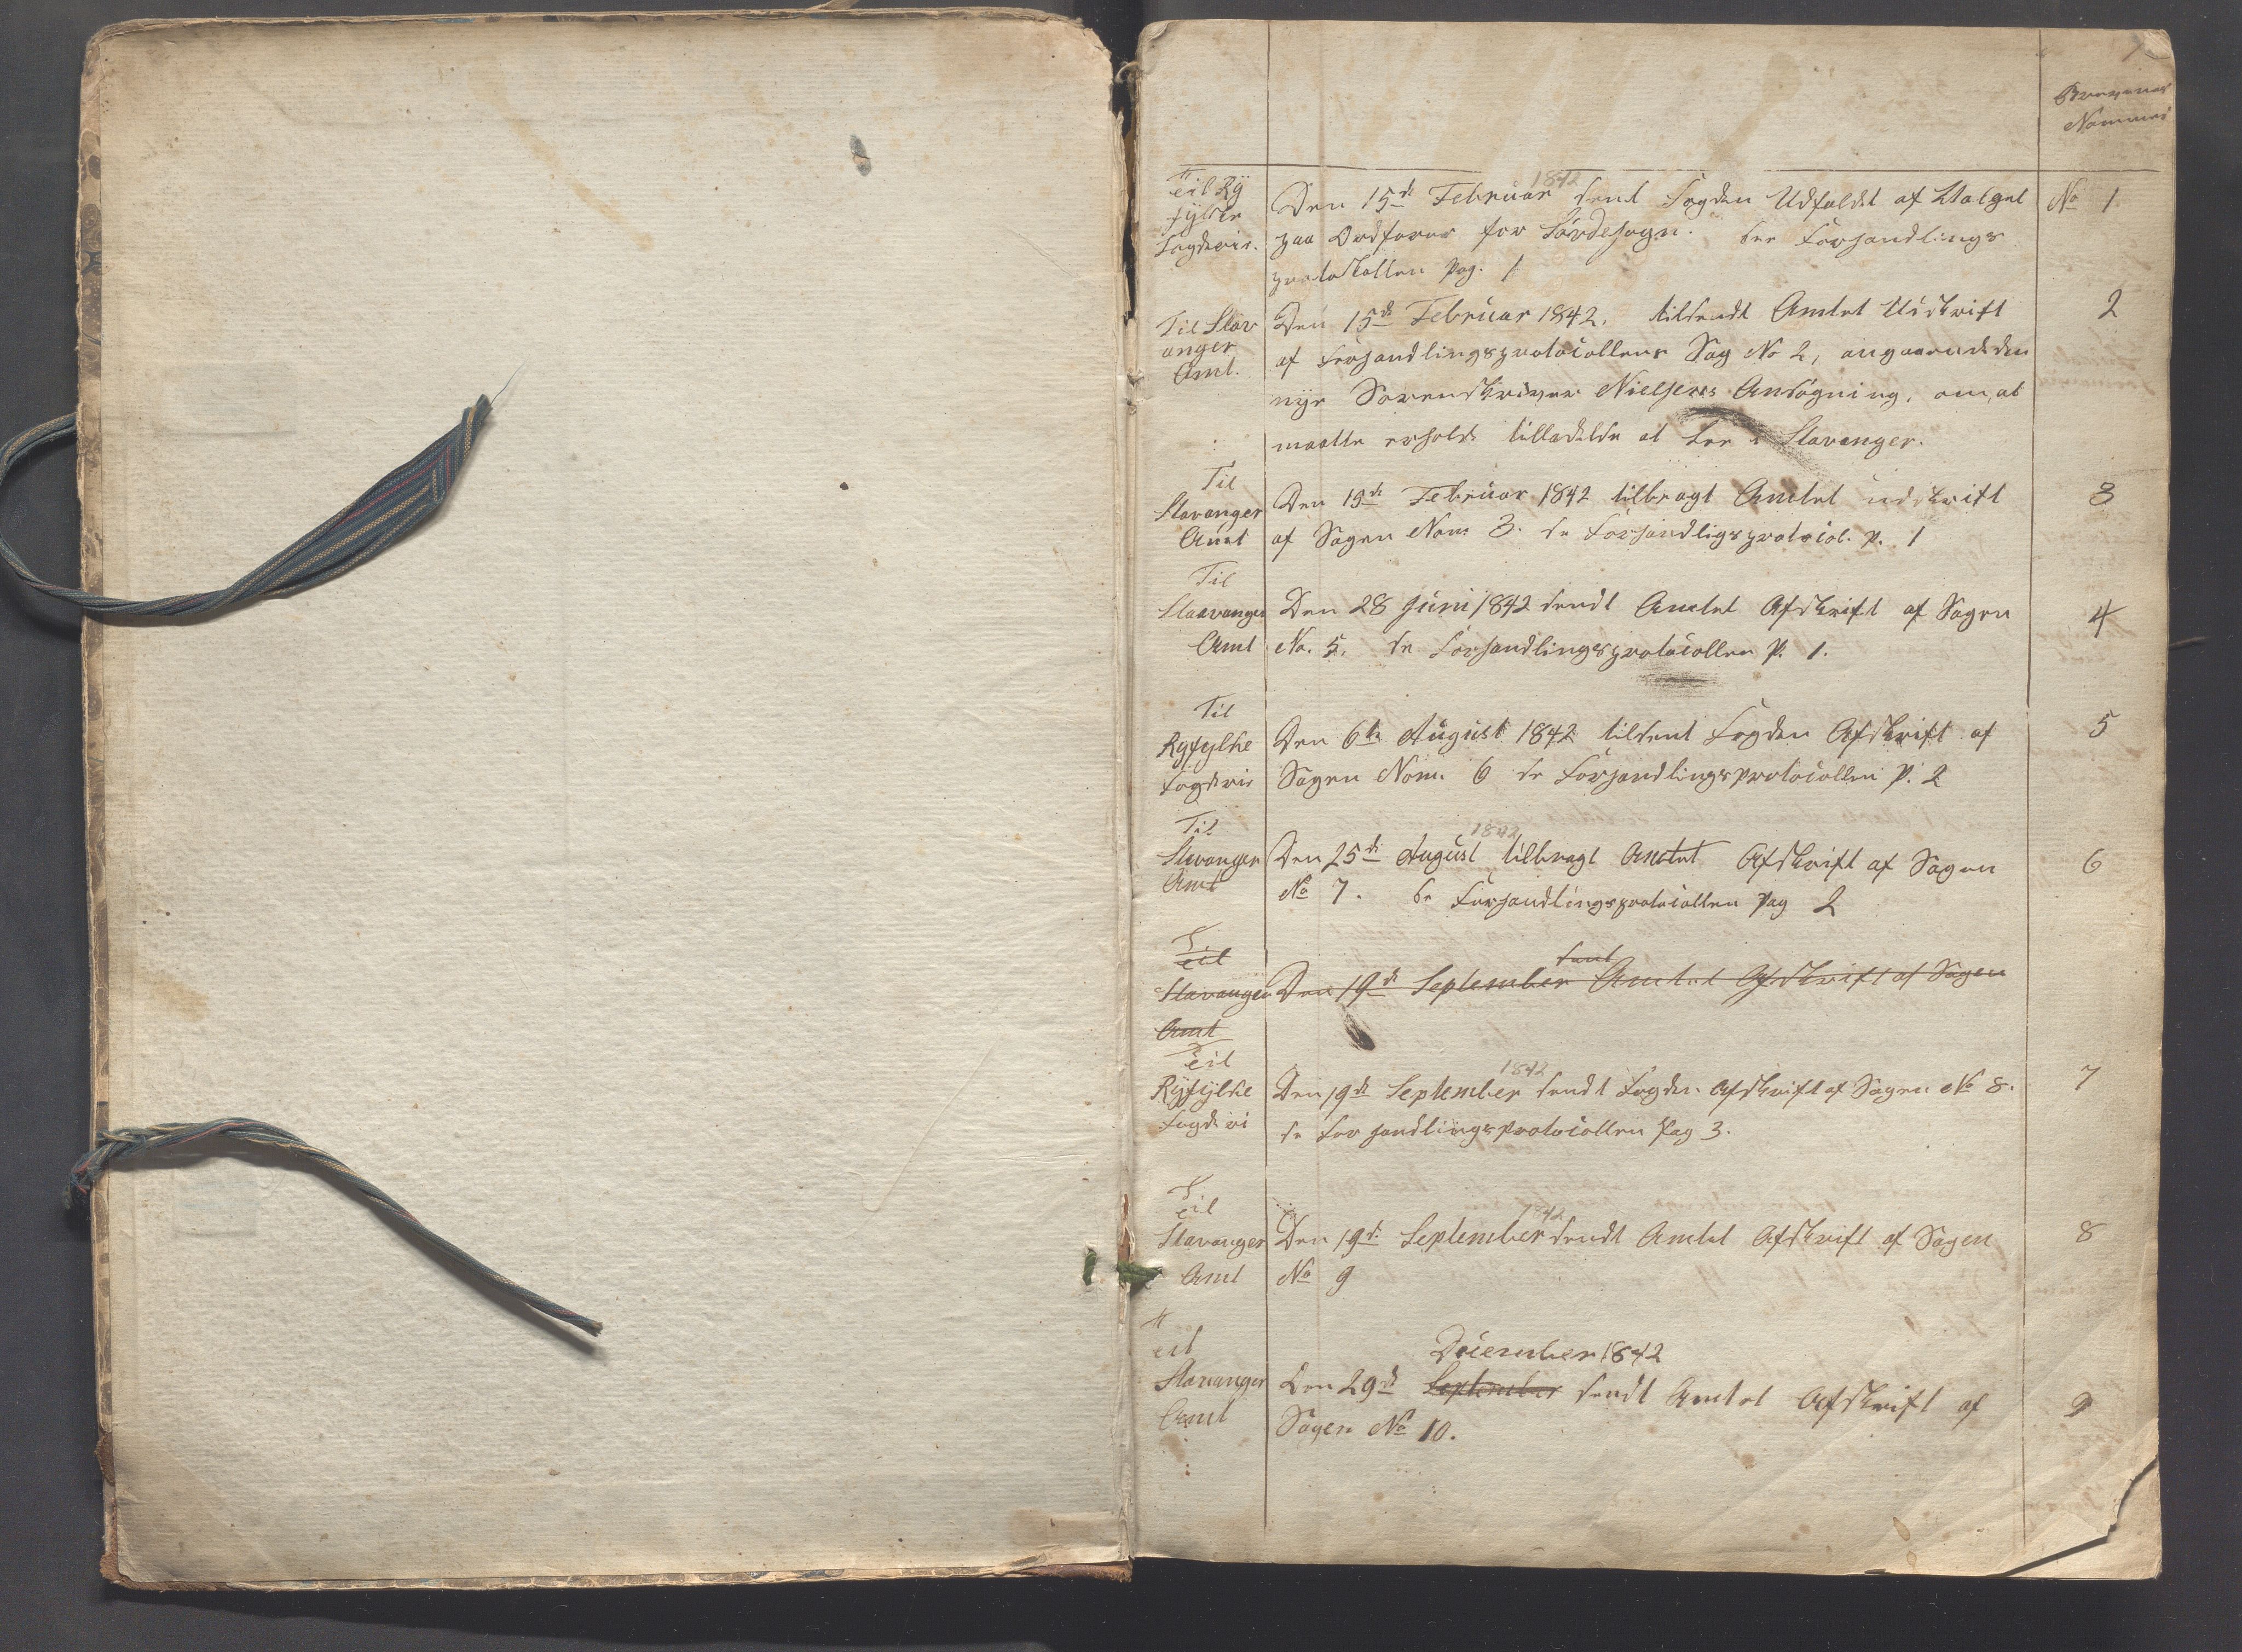 1
Brevenes
Nommer
Til Ry
fylke
Fogderie.
1842
Den 15de Februar sendt Fogden Udfaldet af Valget
paa Ordfører for Søvdesogn. See Forhandlings
protokollen Pag. 1
No 1
Til Stav
anger
Amt.
Den 15de Februar 1842. tilsendt Amtet Udskrift
af Forhandlingsprotocollens Sag No 2, angaaende den
nye Sorenskriver Nielsens Ansøgning, om, at
maatte erholde tilladelse at boe i Stavanger.
2
Til
Stavanger
Amt
Den 19de Februar 1842 tilbragt Amtet udskrift
af Sagen Nom 3. se Forhandligsprotocol. P. 1
3
Til
Staavanger
Amt
Den 28 Juni 1842 sendt Amtet Afskrift af Sagen
No. 5. se Forhandlingsprotocollen P. 1.
4
Til
Ryfylke
Fogderie
Den 6te August 1842 tilsent Fogden Afskrift af
Sagen Nom. 6 se Forhandlingsprotocollen P. 2
5
Til
Stavanger
Amt
1842
Den 25de August tilbragt Amtet Afskrift af Sagen
No 7. Se Forhandlingsprotocollen Pag 2
6
Til
Stavanger
Amt
sent
Den 19de September Amtet Afskrift af Sagen
Til
Ryfylke
Fogderi
1842
Den 19de September sendt Fogden Afskrift af Sagen No 8.
se Forhandlingsprotocollen Pag 3.
7
Til
Stavanger
Amt
1842
Den 19de September sendt Amtet Afskrift af Sagen
No 9
8
Til
Stavanger
Amt
December 1842
Den 29de September sendt Amtet Afskrift af
Sagen No 10.
9